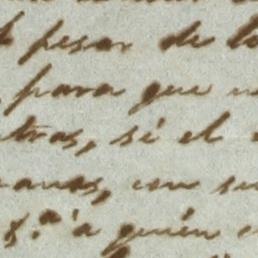 pesar de lo
para que
tras, si el
manas, con su
S.ª á quien